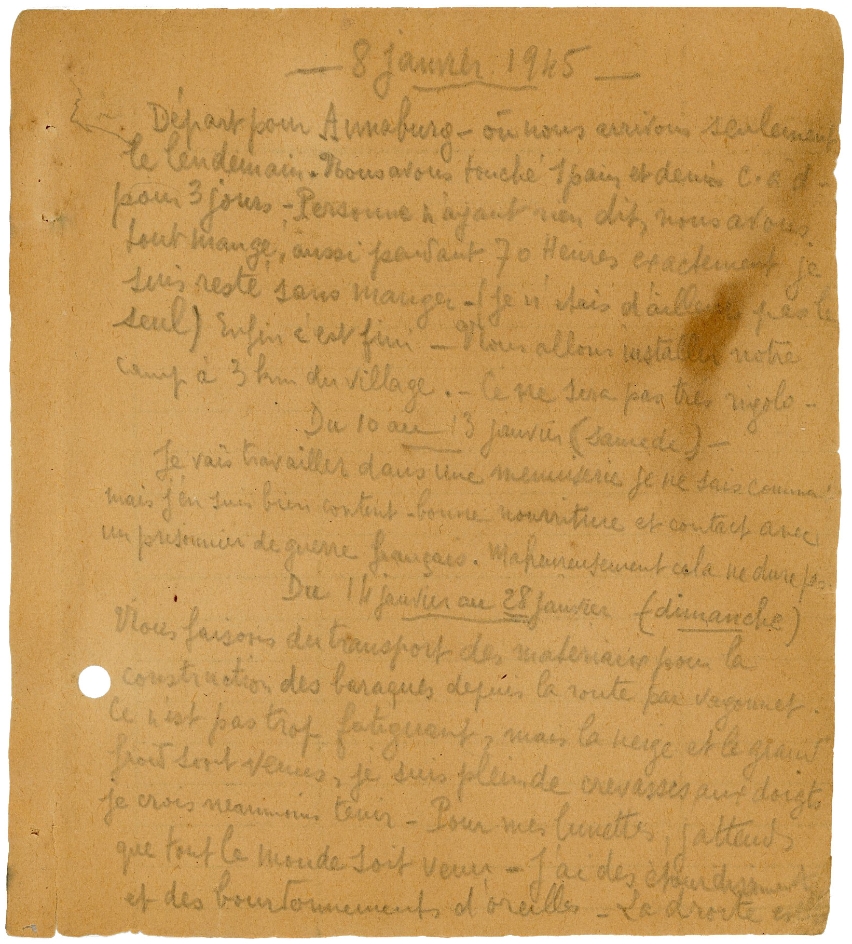 — 8 janvier 1945 —
Départ pour Annaburg - où nous arrivons seulement
le lendemain. Nous avons touché 1 pain et demi c.a d -
pour 3 jours - Personne n'ayant rien dit, nous avons
tout mangé, aussi pendant 70 Heures exactement je
suis resté sans manger - (je n'étais d'ailleurs pas le
seul) Enfin c'est fini - Nous allons installer notre
camp à 3 km du village. - Ce ne sera pas très rigolo -
Du 10 au 13 janvier (samedi) -
Je vais travailler dans une menuiserie je ne sais comment
mais j'en suis bien content - bonne nourriture et contact avec
un prisonnier de guerre français. Malheureusement cela ne dure pas
Du 14 janvier au 28 janvier (dimanche)
Nous faisons du transport des materiaux pour la
construction des baraques depuis la route par vagonnet.
Ce n'est pas trop fatiguant, mais la neige et le grand
froid sont venus, je suis plein de crevasses aux doigts
je crois néanmoins tenir - Pour mes lunettes, j'attends
que tout le monde soit venu - J'ai des étourdissements
et des bourdonnements d'oreilles - La droite est